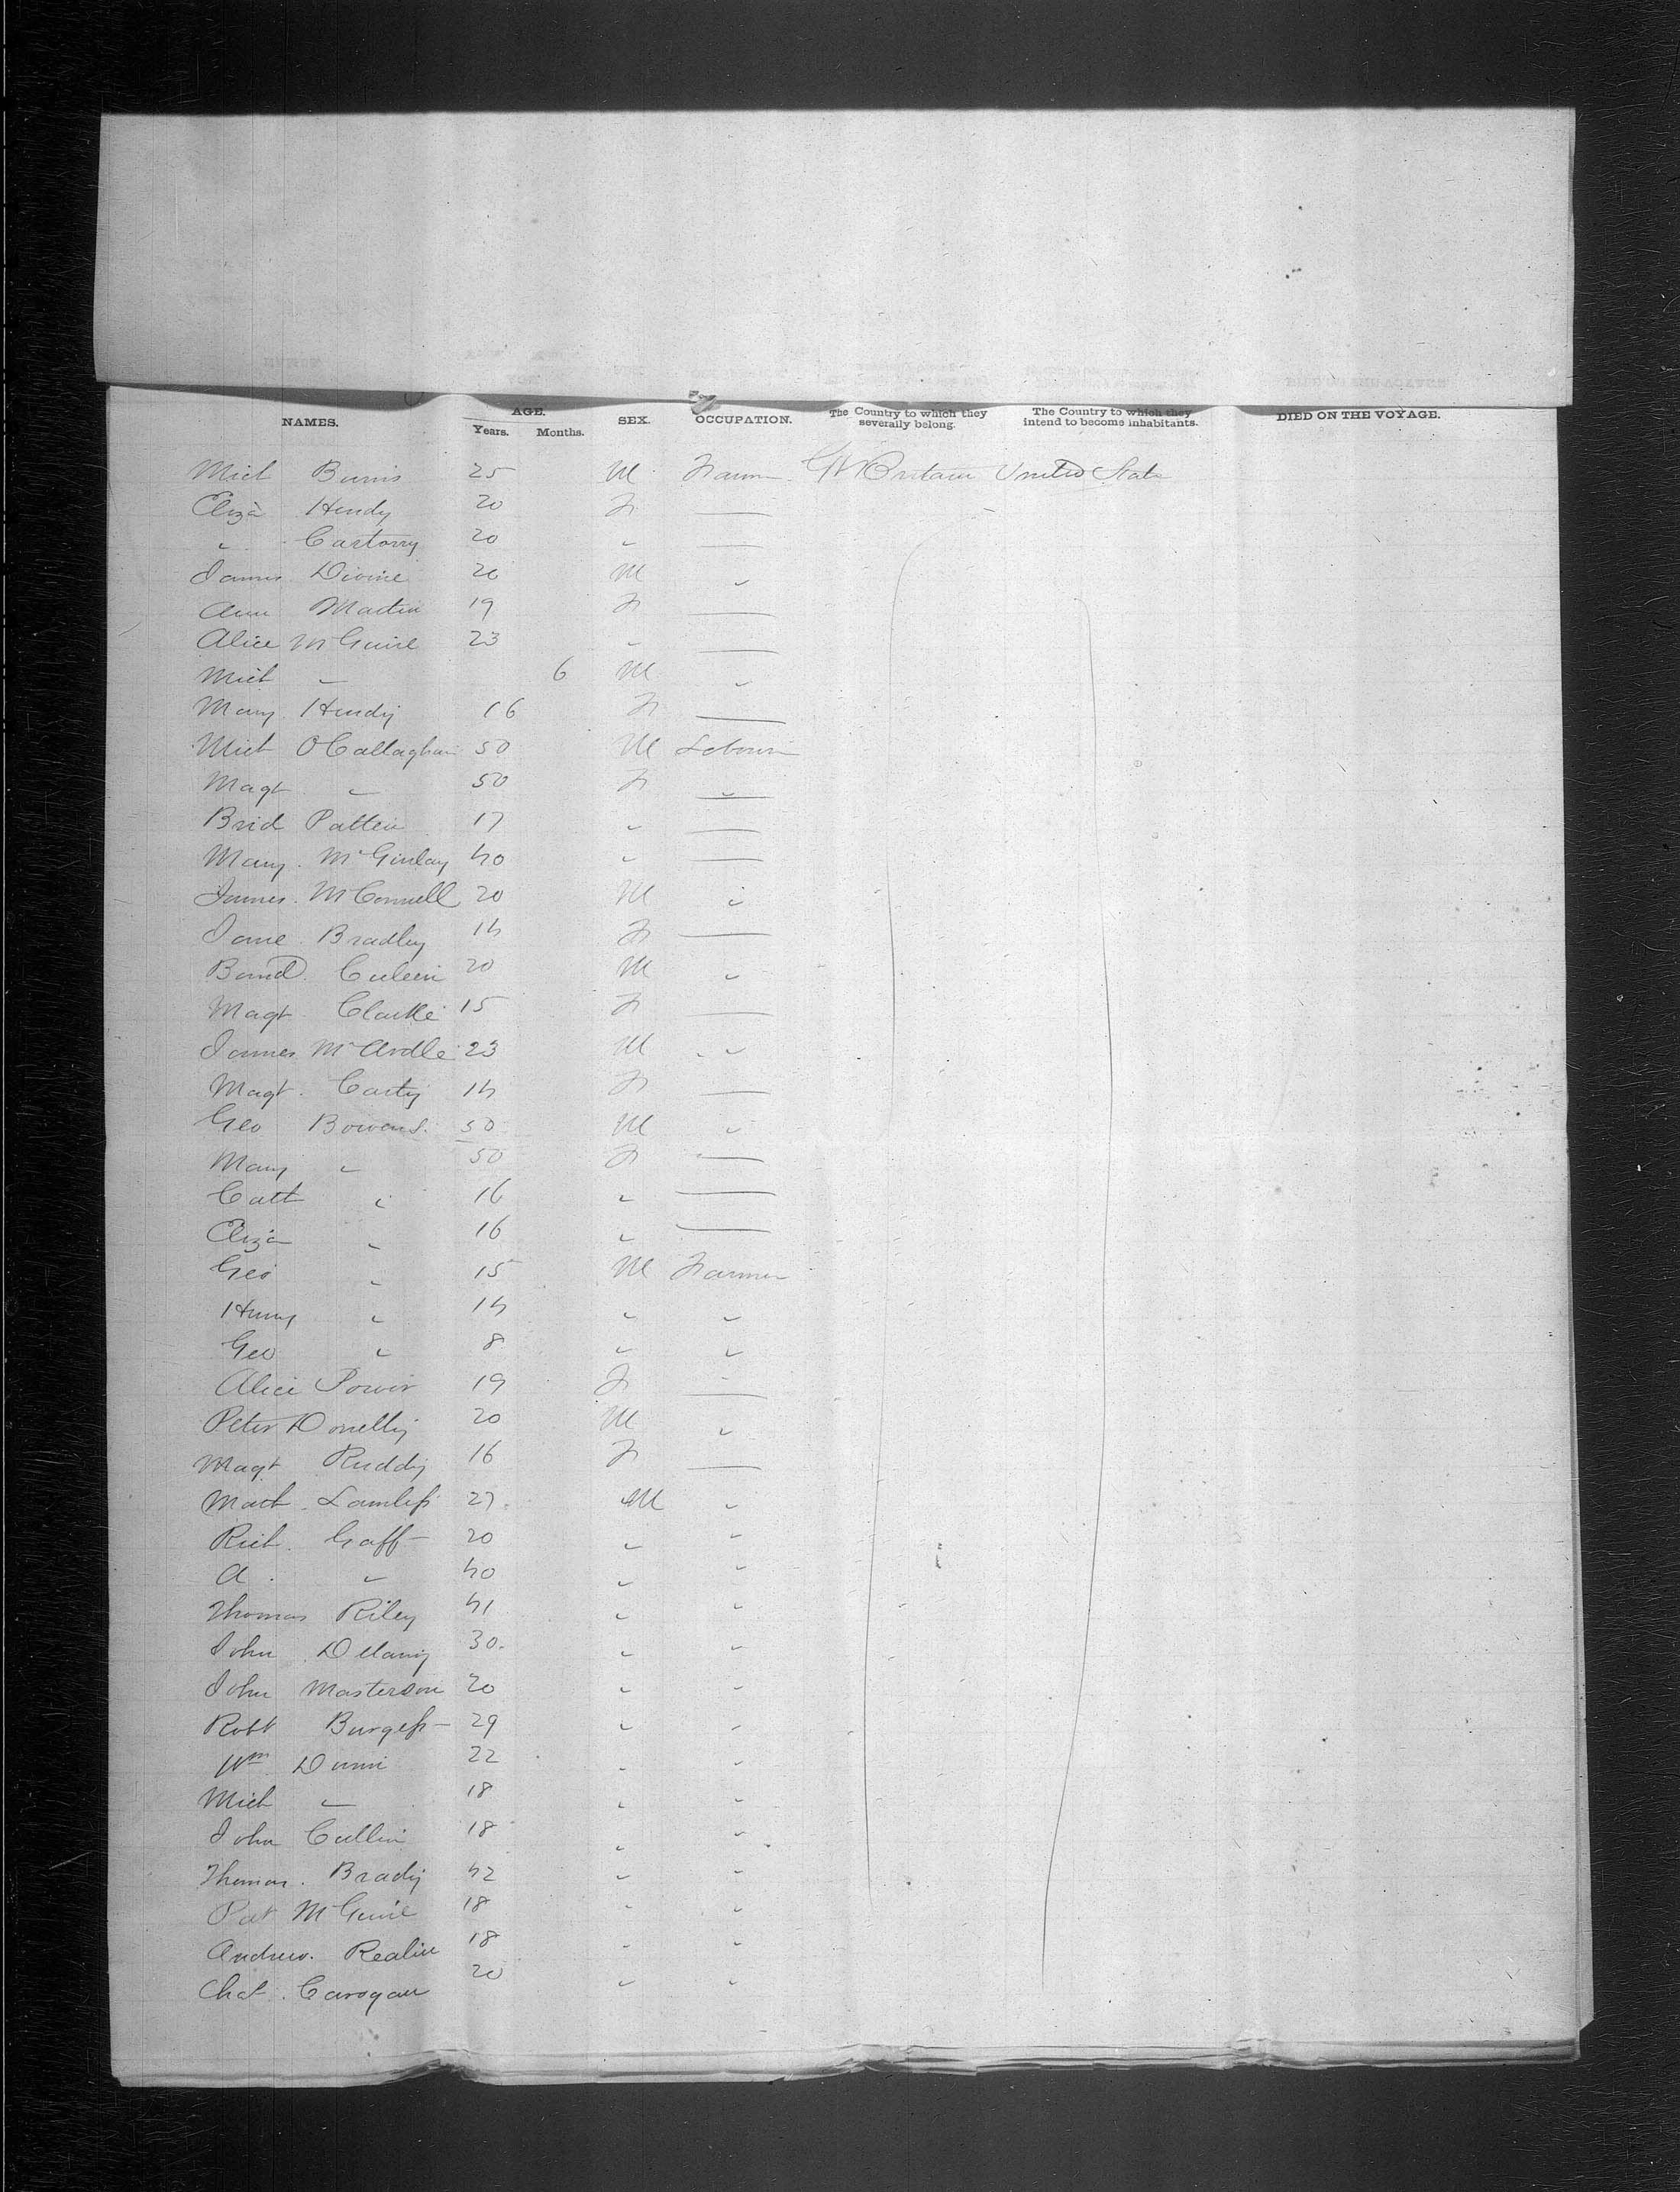 NAMES. AGE. Years. Months. SEX. OCCUPATION. The Country to which they severally belong. The Country to which they intend to become inhabitants. DIED ON THE VOYAGE.
Mich Burns 25 M Farmer Gt Britain United States
Eliza Hendy 20 F —
" 20 " —
James Divine 20 M "
Ann Martin 19 F —
Alice McGuire 23 " —
Mich " 6 M "
Mary Hendy 16 F —
Mich OCallaghan 50 M Labourer
Magt " 50 F "
Brid Patten 17 " —
Mary McGinlay 40 " —
James McConnell 20 M "
Jane Bradley 14 F —
Bernd Culeen 20 M "
Magt Clarke 15 F —
James McArdle 23 M "
Magt Carty 14 F —
Geo Bowens 50 M "
Mary " 50 F —
Cath " 16 " —
Eliza " 16 " —
Geo " 15 M Farmer
Henry " 14 " "
Geo " 8 " "
Alice Power 19 F —
Peter Donelly 20 M "
Magt Ruddy 16 F —
Math Lawless 27 M "
Rich Gaff 20 " "
A " 40 " "
Thomas Riley 41 " "
John Delany 30 " "
John Masterson 20 " "
Robt Burgess 29 " "
Wm Dunn 22 " "
Mich " 18 " "
John Cullin 18 " "
Thomas Brady 42 " "
Pat McGuire 18 " "
Andrew 18 " "
Chas 20 " "